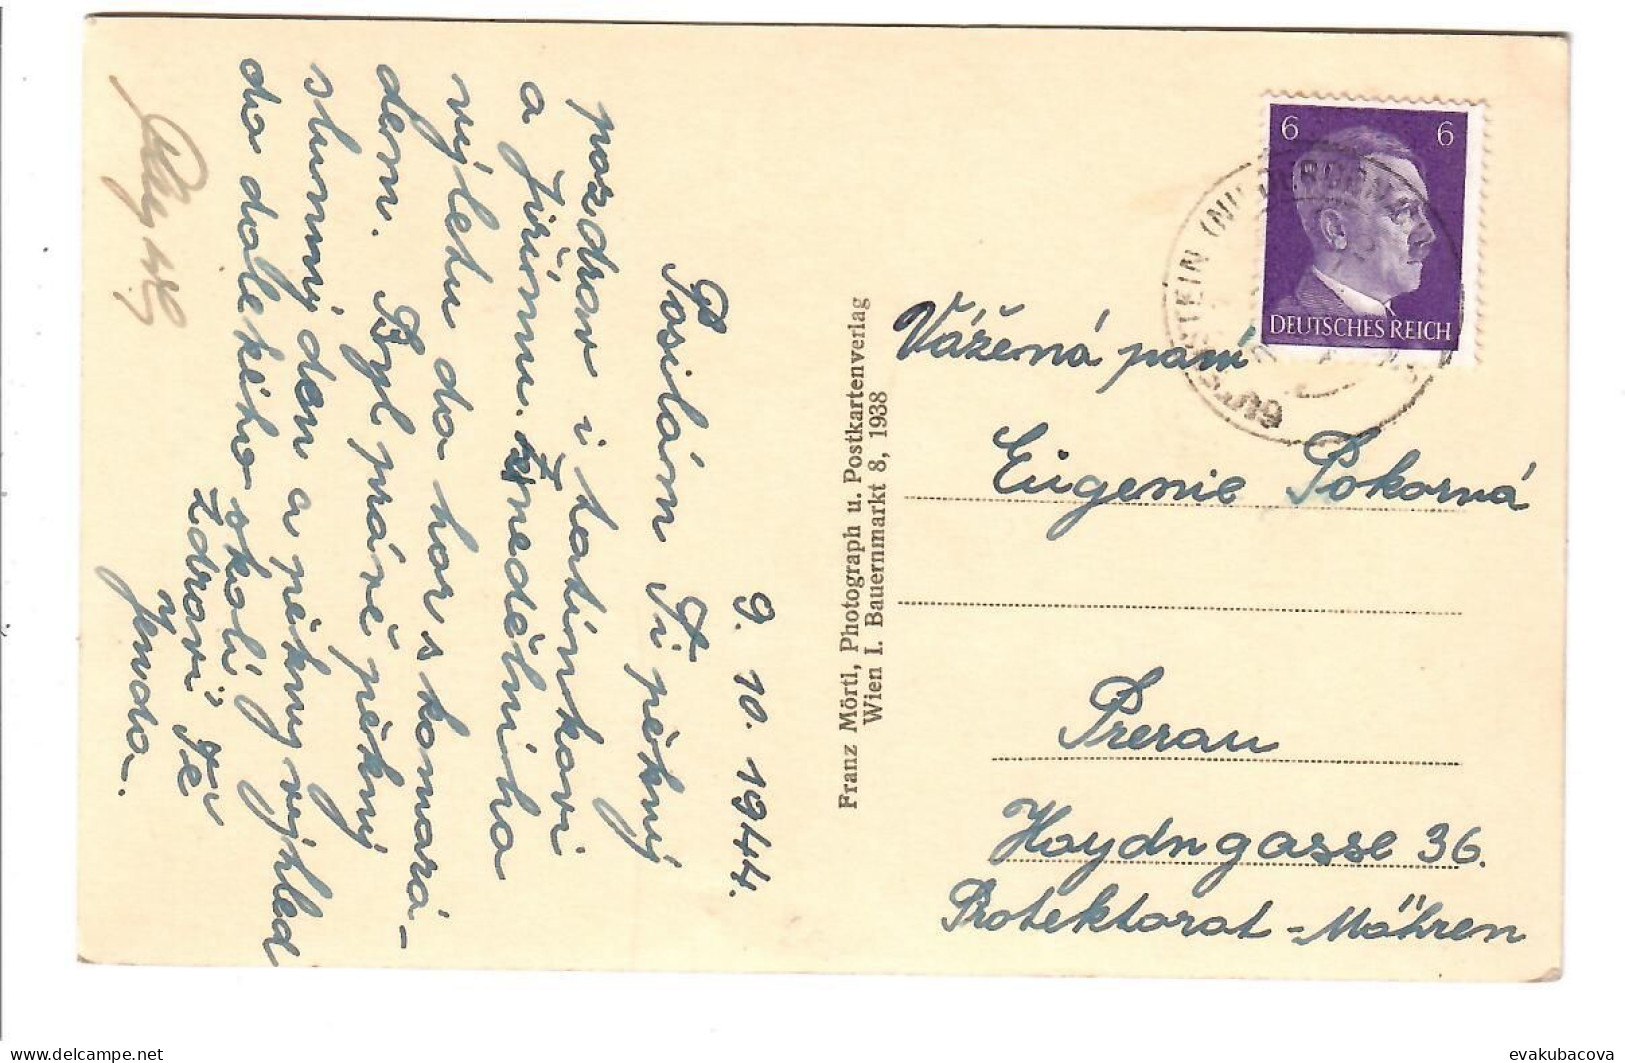 9. 10. 1944.
Posílám Ti pěkný
pozdrav i tatínkovi
a Jiřímu. Z nedělního
výletu do hor s kamará-
dem. Byl právě pěkný
slunný den a pěkný výhled
do dalekého okolí
Zdraví Tě
Jenda.
Franz Mörtl, Photograph u. Postkartenverlag
Wien I. Bauernmarkt 8, 1938
6 6
DEUTSCHES REICH
Vážená paní
Eugenie Pokorná
Prerau
Haydngasse 36.
Protektorat - Mähren
delcampe.net
evakubacova